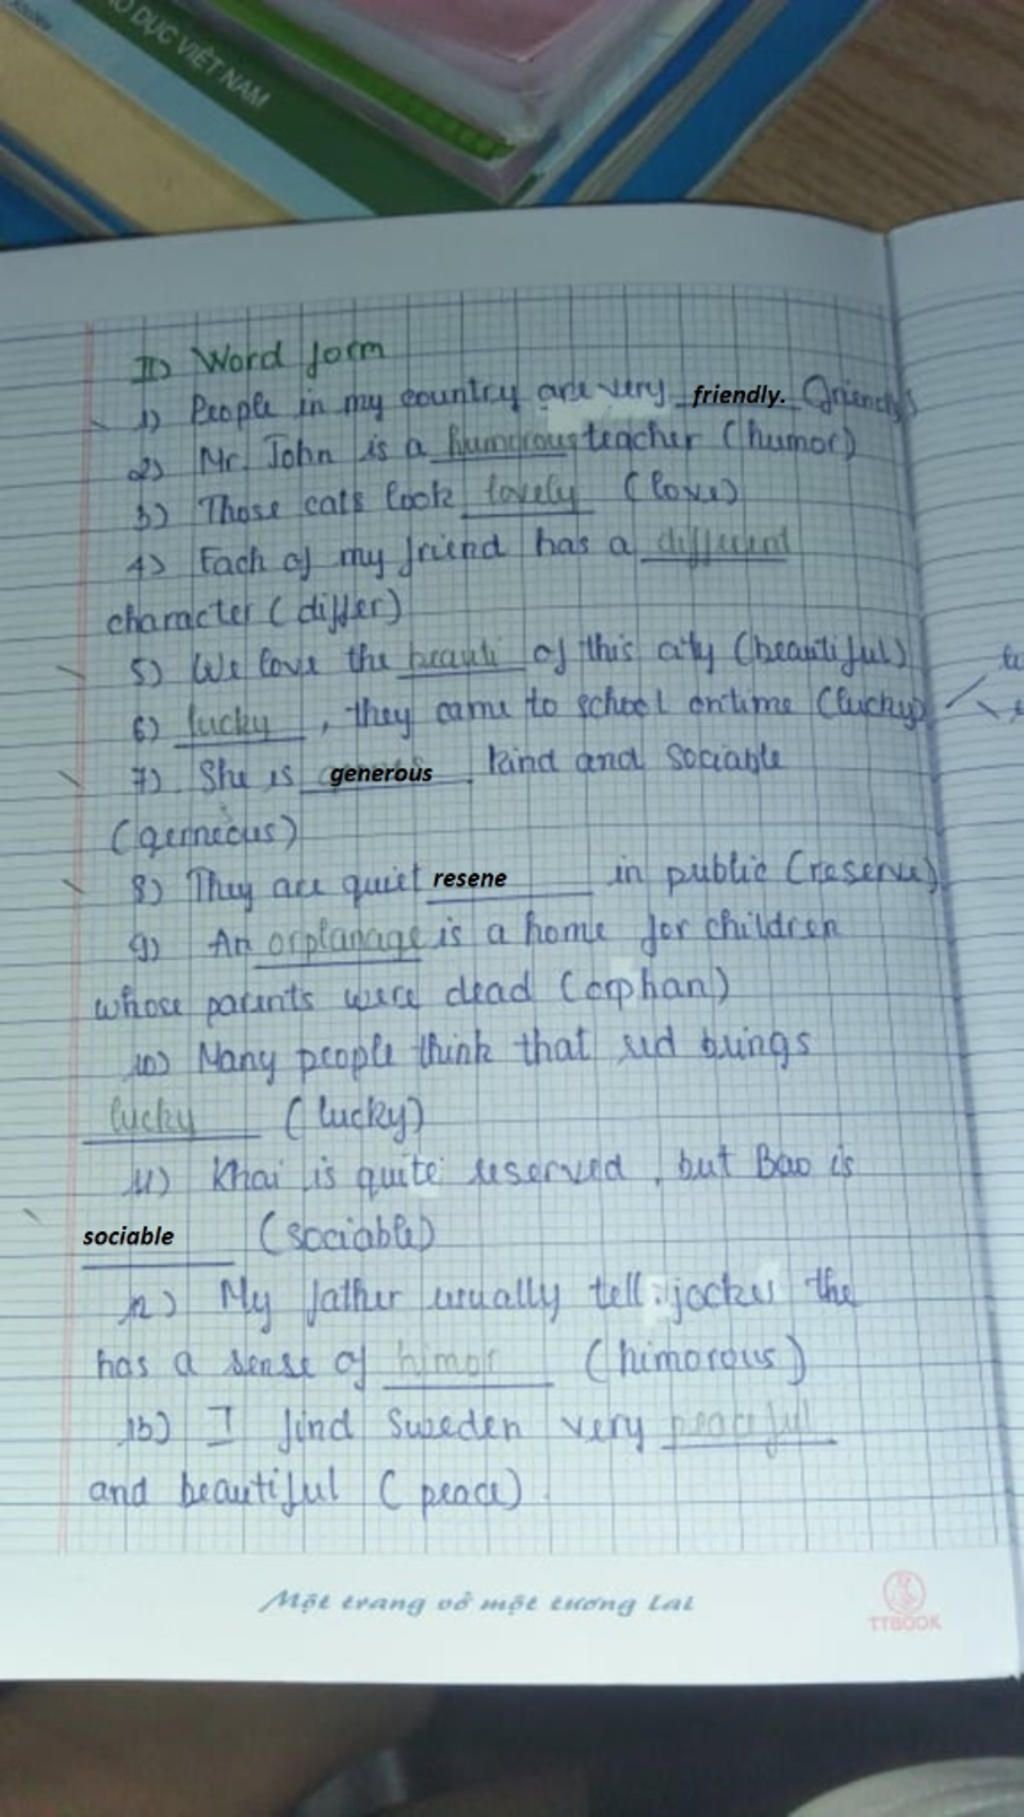 DỤC VIỆT NAM
II) Word form
1) People in my country are very friendly. (friendly)
2) Mr. John is a humorous teacher (humor)
3) Those cats look lovely (love)
4) Each of my friend has a different
character (differ)
5) We love the beauti of this city (beautiful)
6) lucky, they came to school ontime (lucky)
7) She is generous kind and sociable
(gernecus)
8) They are quiet resene in public (reserve)
9) An orplanage is a home for children
whose parents were dead (orphan)
10) Many people think that red brings
lucky (lucky)
11) Khai is quite reserved, but Bao is
sociable (sociable)
12) My father usually tell jockes the
has a sense of himor (himorous)
13) I find Sweden very peaceful
and beautiful (peace).
Một trang vở một tương lai
TTBOOK